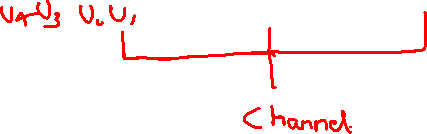 U4 U3 U2 U1
Channel